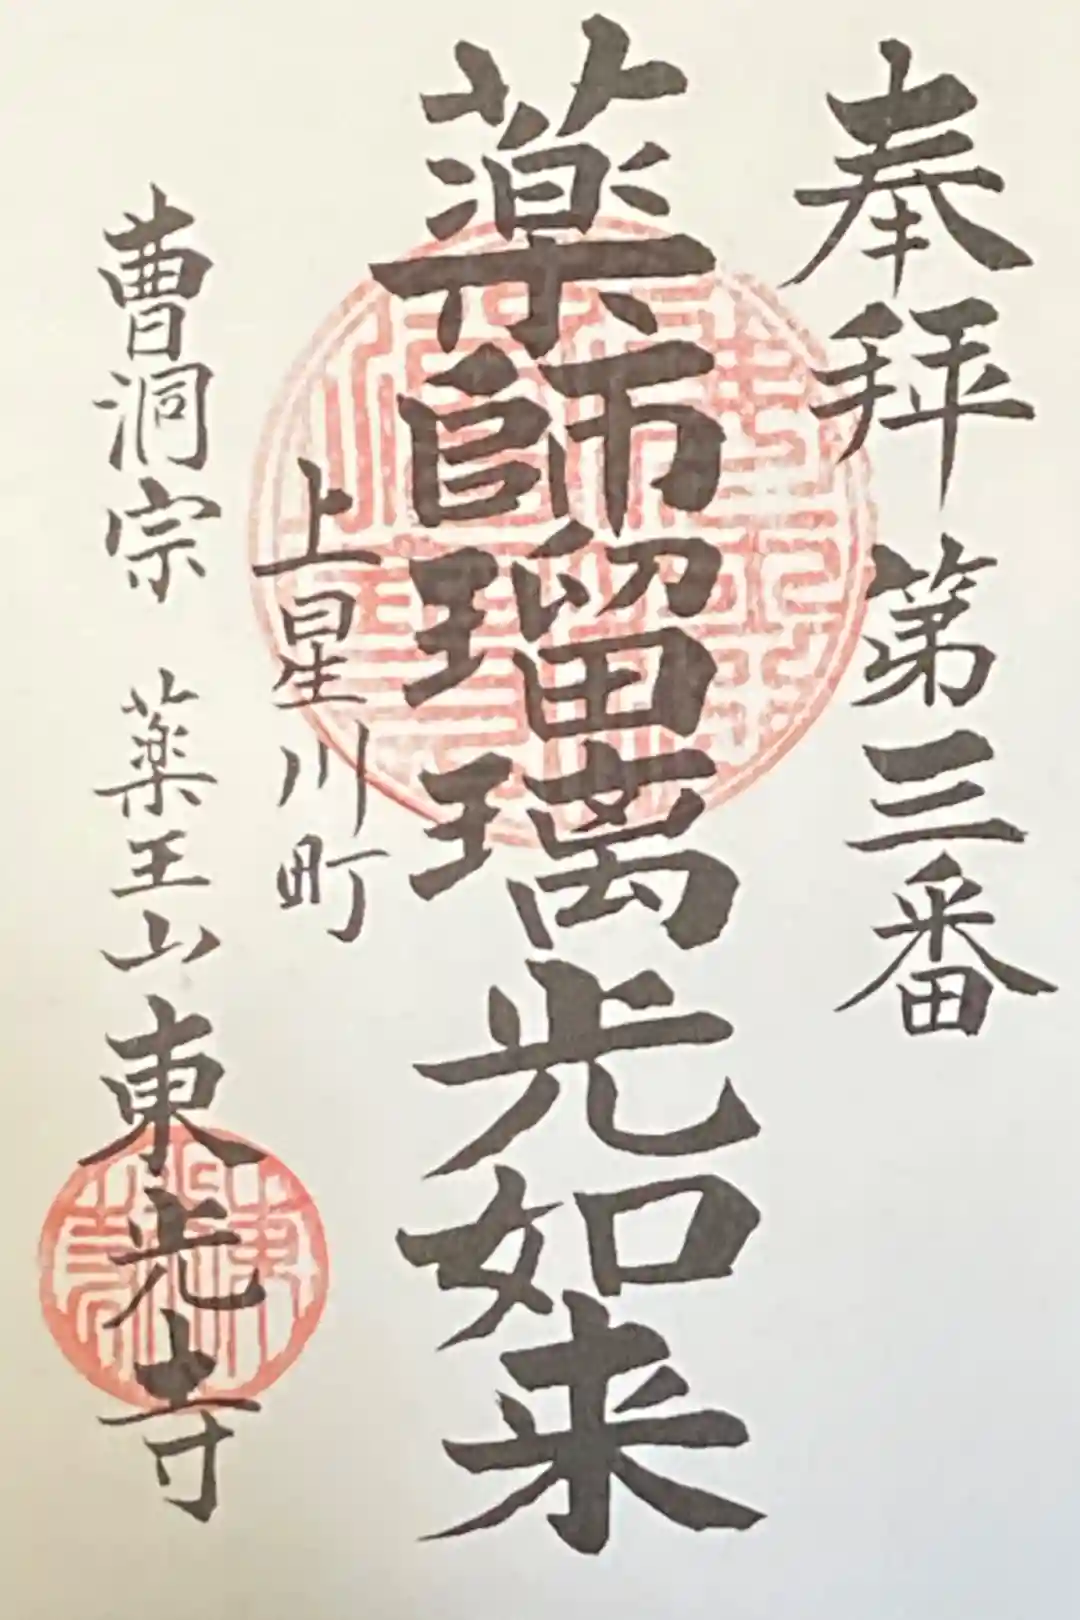 奉拝 第三番
薬師瑠璃光如来
上星川町
曹洞宗 薬王山 東光寺